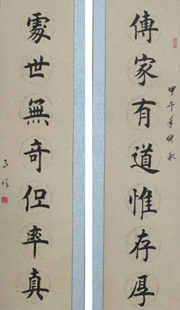 傳家有道惟存厚
甲午年仲秋
處世無奇但率真